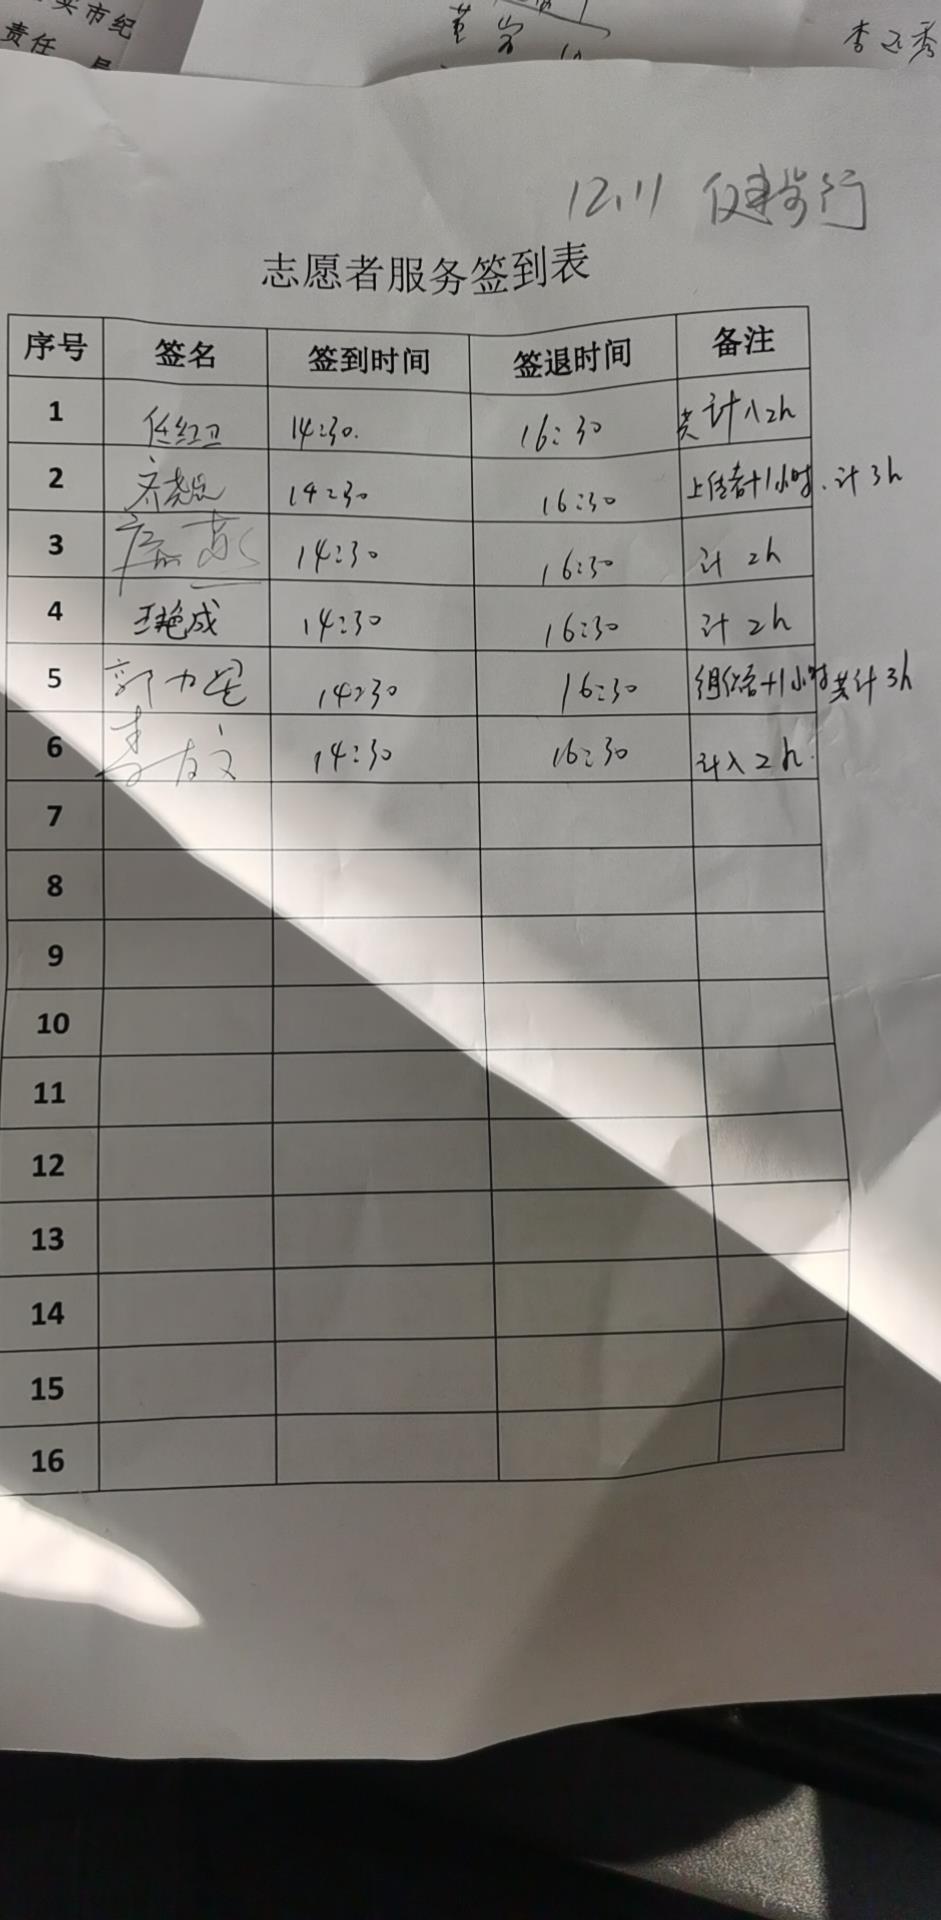 实市纪
责任
12.11 健步行
志愿者服务签到表
序号 签名 签到时间 签退时间 备注
1 任红卫 14:30. 16:30 共计入2h
2 14:30 16:30 上传者+1小时.计3h
3 14:30 16:30 计 2h
4 王艳成 14:30 16:30 计 2h
5 郭力 14:30 16:30 组织者+1小时共计3h
6 李友文 14:30 16:30 计入2h.
7
8
9
10
11
12
13
14
15
16